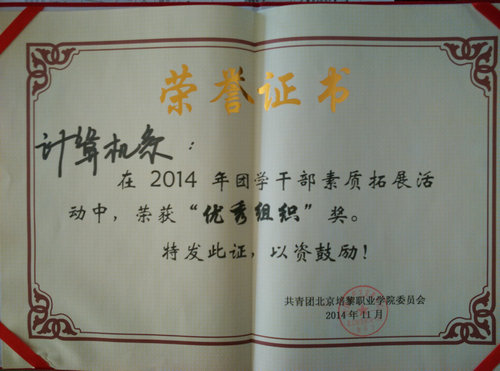 荣誉证书
计算机系：
在 2014 年团学干部素质拓展活
动中，荣获“优秀组织”奖。
特发此证，以资鼓励！
共青团北京培黎职业学院委员会
2014年11月